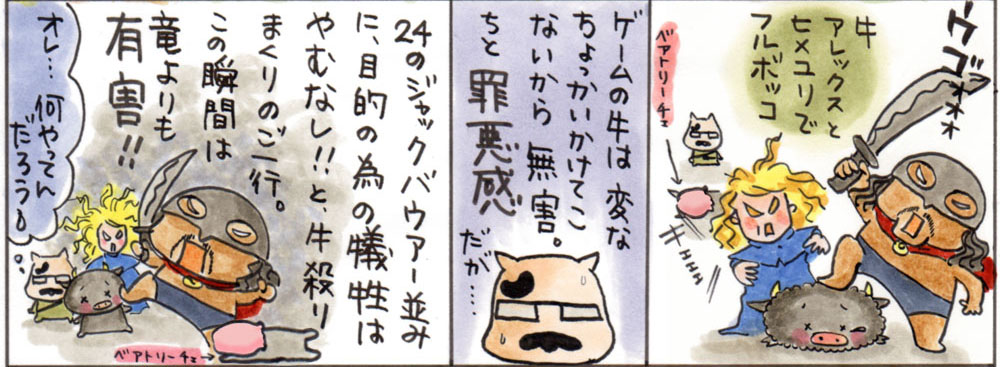 牛
アレックスと
ヒメユリで
フルボッコ
ウゴォォォ
ベアトリーチェ
ゲームの牛は 変な
ちょっかいかけてこ
ないから 無害。
ちと 罪悪感
だが‥‥
24のジャックバウアー並み
に、目的の為の犠牲は
やむなし!!と、牛殺り
まくりのご一行。
この瞬間は
竜よりも
有害!!
オレ… 何やってん
だろう。
ベアトリーチェ→